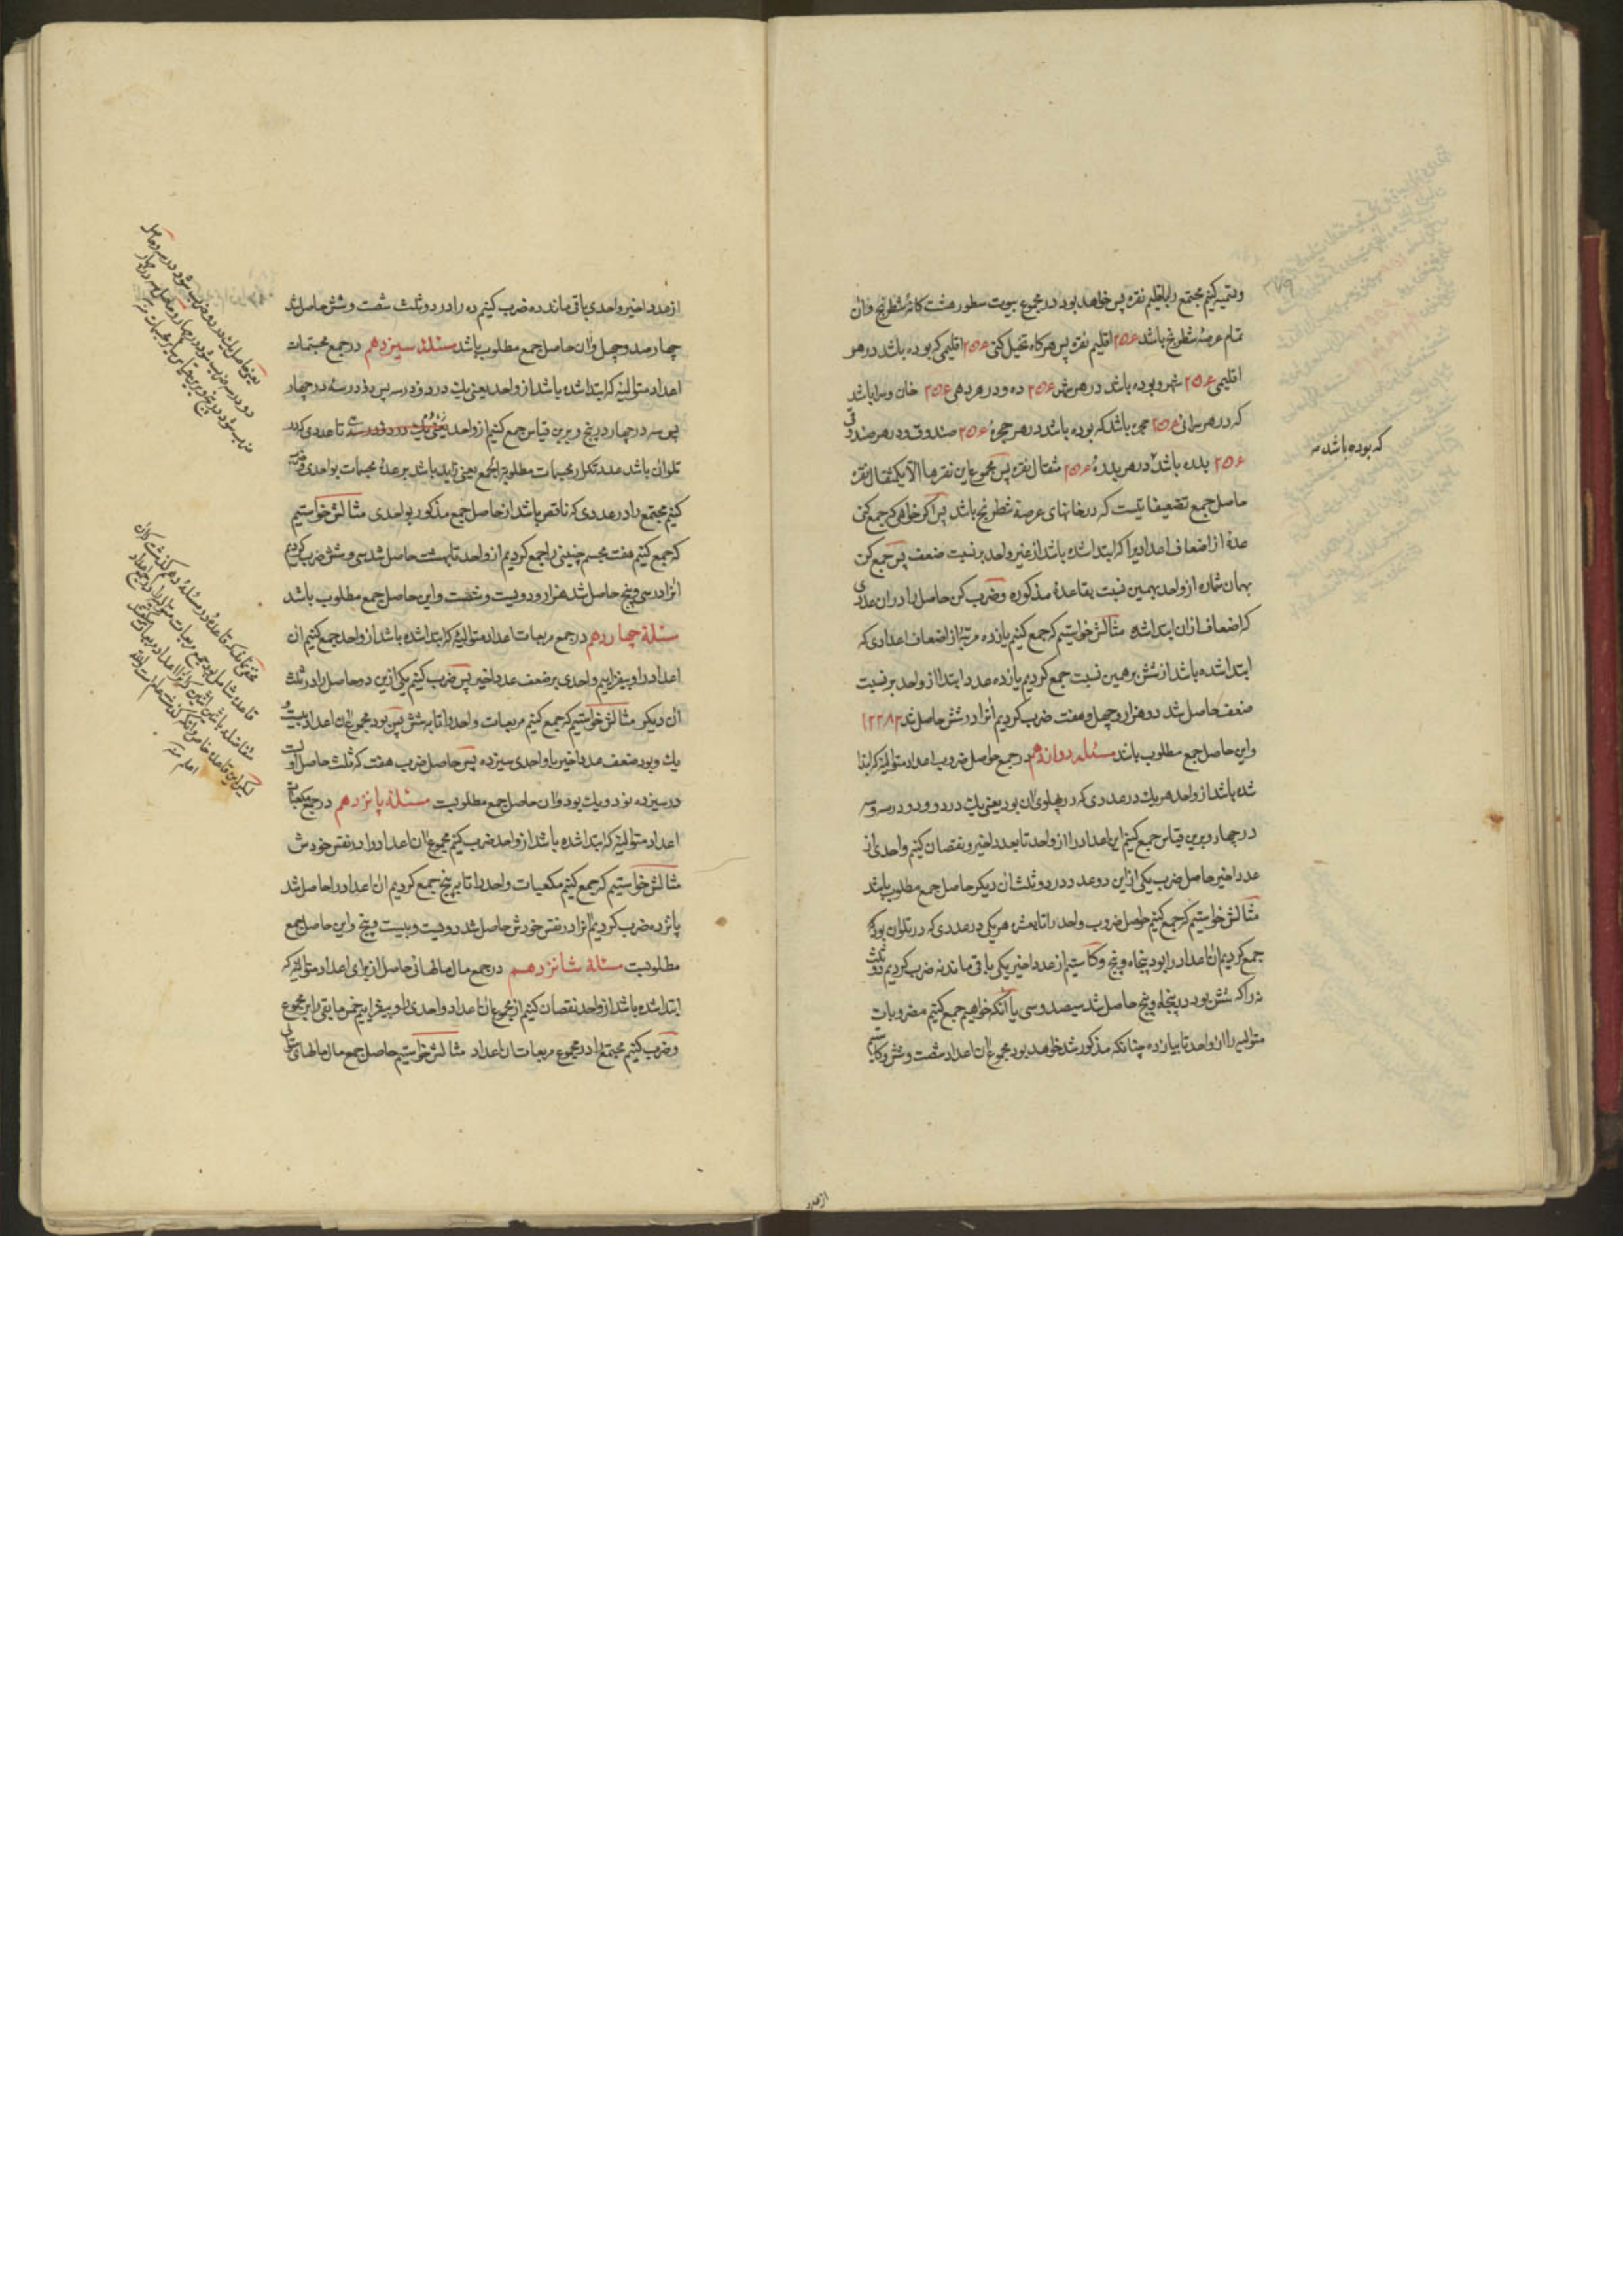 وتسمیه کنیم مجتمع را باقلیم نقره پس خواهد بود در مجموع بیوت سطور هشت کانهٔ شطرنج وآن
تمام عرصهٔ شطرنج باشد ۲۵۶ اقلیم نقره پس هرکاه تخیل کنی ۲۵۶ اقلیمی که بوده باشد در هر
اقلیمی ۲۵۶ شهر و بوده باشد در هر شهر ۲۵۶ ده و در هر دهی ۲۵۶ خان وسرا باشد
که در هر سرائی ۲۵۶ حجره باشد که بوده باشد در هر حجرهٔ ۲۵۶ صندوق و در هر صندوقی
۲۵۶ بدره باشد در هر بدرهٔ ۲۵۶ مثقال نقره پس مجموع این نقرها الا یکمثقال نقره
حاصل جمع تضعیفاتیست که در خانهای عرصهٔ شطرنج باشد پس اکر خواهی که جمع کنی
عدهٔ از اضعاف اعدادیرا که ابتدا شده باشد از غیر واحد بر نسبت ضعف پس جمع کن
بهمان شماره از واحد بهمین نسبت بقاعدهٔ مذکوره وضرب کن حاصل را در ان عددی
که اضعاف ازان ابتدا شده مثالش خواستیم که جمع کنیم یازده مرتبه از اضعاف اعدادی که
ابتدا شده باشد از شش بر همین نسبت جمع کردیم یازده عدد ابتدا از واحد بر نسبت
ضعف حاصل شد دو هزار و چهل وهفت ضرب کردیم آنرا در شش حاصل شد ۱۲۲۸۲
واین حاصل جمع مطلوب باشد مسئله دوازدهم در جمع حواصل ضروب اعداد متوالیهٔ که ابتدا
شده باشد از واحد هر یک در عددی که در پهلوی ان بود یعنی یک در دو و دو در سه وسه
در چهار و برین قیاس جمع کنیم این اعداد را از واحد تا بعدد اخیر و نقصان کنیم واحدی از
عدد اخیر حاصل ضرب یکی از این دو عدد در دو ثلث ان دیکر حاصل جمع مطلوب باشد
مثالش خواستیم که جمع کنیم حواصل ضروب واحد را تا بده هر یکی در عددی که در تلوان بود که
جمع کردیم ان اعداد را بود پنجاه وپنج وکاستیم از عدد اخیر یکی باقی ماند نه ضرب کردیم دو ثلث
نه را که شش بود در پنجاه وپنج حاصل شد سیصد وسی یا آنکه خواهیم جمع کنیم مضروبات
متوالیه را از واحد تا بیازده چنانکه مذکور شد خواهد بود مجموع ان اعداد شصت وشش وکاستیم
که بوده باشد
از عدد
از عدد اخیر واحدی باقی ماند ده ضرب کنیم ده را در دو ثلث شصت وشش حاصل شد
چهارصد وچهل وان حاصل جمع مطلوب باشد مسئله سیزدهم در جمع مجسمات
اعداد متوالیهٔ که ابتدا شده باشد از واحد یعنی یک در دو و دو در سه پس دو در سه در چهار
پس سه در چهار در پنج وبرین قیاس جمع کنیم از واحد یعنی یک در دو و در سه تا عددی که در
تلوان باشد عدد تکرار مجسمات مطلوبة الجمع یعنی زاید باشد بر عدهٔ مجسمات بواحدی وضرب
کنیم مجتمع را در عددی که ناقص باشد از حاصل جمع مذکور بواحدی مثالش خواستیم
که جمع کنیم هفت مجسم چنینی را جمع کردیم از واحد تا بهشت حاصل شد سی وشش ضرب کردیم
انرا در سی وپنج حاصل شد هزار ودویست وشصت واین حاصل جمع مطلوب باشد
مسئلهٔ چهاردهم در جمع مربعات اعداد متوالیهٔ که ابتدا شده باشد از واحد جمع کنیم ان
اعداد را وبیفزاییم واحدی بر ضعف عدد اخیر پس ضرب کنیم یکی ازین دو حاصل را در ثلث
ان دیکر مثالش خواستیم که جمع کنیم مربعات واحد را تا به شش پس بود مجموع ان اعداد بیست و
یک وبود ضعف عدد اخیر با واحدی سیزده پس حاصل ضرب هفت که ثلث حاصل اولست
در سیزده نود ویک بود وان حاصل جمع مطلوبست مسئلهٔ پانزدهم در جمع مکعبات
اعداد متوالیهٔ که ابتدا شده باشد از واحد ضرب کنیم مجموع ان اعداد را در نفس خودش
مثالش خواستیم که جمع کنیم مکعبات واحد را تا به پنج جمع کردیم ان اعداد را حاصل شد
پانزده ضرب کردیم انرا در نفس خودش حاصل شد دویست وبیست وپنج واین حاصل جمع
مطلوبست مسئلهٔ شانزدهم در جمع مال مالهائی حاصل از برای اعداد متوالیهٔ که
ابتدا شده باشد از واحد نقصان کنیم از مجموع ان اعداد واحدی را وبیفزاییم خمس مابقی را بر مجموع
وضرب کنیم مجتمع را در مجموع مربعات ان اعداد مثالش خواستیم حاصل جمع مال مالهای متوالی